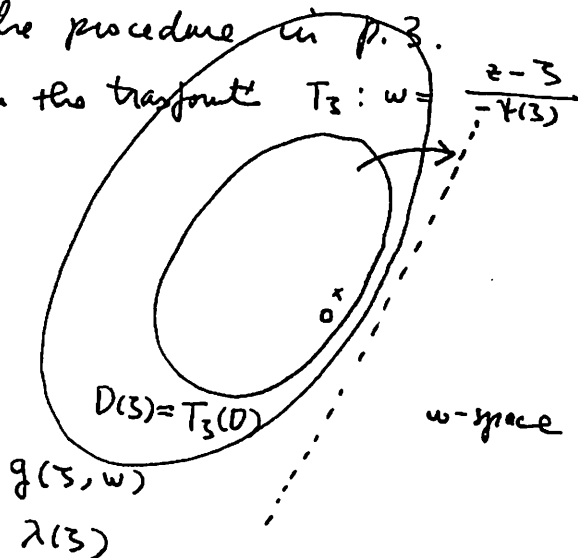 the procedure in p. 3.
the trasformt T_ζ : w = \frac{z - ζ}{-ψ(ζ)}
0
D(ζ) = T_ζ(D)
w-space
g(ζ, w)
λ(ζ)